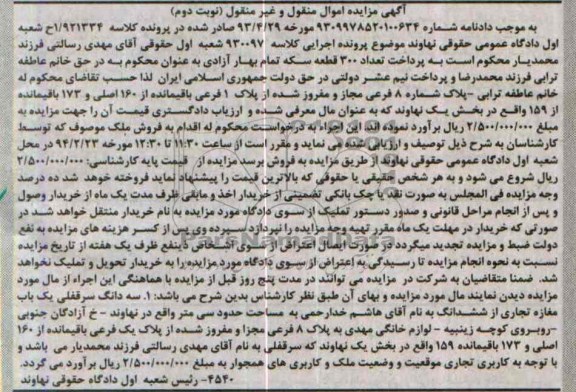 آگهی مزایده اموال منقول و غیر منقول (نوبت دوم)
به موجب دادنامه شماره ۹۳۰۹۹۷۸۵۲۰۱۰۰۶۳۴ مورخه ۹۳/۴/۲۹ صادر شده در پرونده کلاسه ۱/۹۲۱۳۳۴ح شعبه
اول دادگاه عمومی حقوقی نهاوند موضوع پرونده اجرایی کلاسه ۹۳۰۰۹۷ شعبه اول حقوقی آقای مهدی رسالتی فرزند
محمدیار محکوم است به پرداخت تعداد ۳۰۰ قطعه سکه تمام بهار آزادی به عنوان محکوم به در حق خانم عاطفه
ترابی فرزند محمدرضا و پرداخت نیم عشر دولتی در حق دولت جمهوری اسلامی ایران لذا حسب تقاضای محکوم له
خانم عاطفه ترابی -پلاک شماره ۸ فرعی مجاز و مفروز شده از پلاک ۱ فرعی باقیمانده از ۱۶۰ اصلی و ۱۷۳ باقیمانده
از ۱۵۹ واقع در بخش یک نهاوند که به عنوان مال معرفی شده و ارزیاب دادگستری قیمت آن را جهت مزایده به
مبلغ ۲/۵۰۰/۰۰۰/۰۰۰ ریال برآورد نموده اند این اجراء به درخواست محکوم له اقدام به فروش ملک موصوف که توسط
کارشناسان به شرح ذیل توصیف و ارزیابی شده می نماید و مقرر است از ساعت ۱۱:۳۰ تا ۱۲:۳۰ مورخه ۹۴/۲/۲۳ در محل
شعبه اول دادگاه عمومی حقوقی نهاوند از طریق مزایده به فروش برسد مزایده از قیمت پایه کارشناسی: ۲/۵۰۰/۰۰۰/۰۰۰
ریال شروع می شود و به هر شخص حقیقی یا حقوقی که بالاترین قیمت را پیشنهاد نماید فروخته خواهد شد ده درصد
وجه مزایده فی المجلس به صورت نقد یا چک بانکی تضمینی از خریدار اخذ و مابقی ظرف مدت یک ماه از خریدار وصول
و پس از انجام مراحل قانونی و صدور دستور تملیک از سوی دادگاه مورد مزایده به نام خریدار منتقل خواهد شد در
صورتی که خریدار در مهلت یک ماه مقرر بقیه وجه مزایده را نپردازد سپرده وی پس از کسر هزینه های مزایده به نفع
دولت ضبط و مزایده تجدید میگردد در صورت وصول اعتراض از سوی اشخاص ذینفع ظرف یک هفته از تاریخ مزایده
نسبت به نحوه انجام مزایده تا رسیدگی به اعتراض از سوی دادگاه مورد مزایده را به خریدار تحویل و تملیک نخواهد
شد. ضمنا متقاضیان به شرکت در مزایده می توانند در مدت پنج روز قبل از مزایده با هماهنگی این اجراء از مال مورد
مزایده دیدن نمایند مال مورد مزایده و بهای آن طبق نظر کارشناس بدین شرح می باشد: ۱. سه دانگ سرقفلی یک باب
مغازه تجاری از ششدانگ به نام آقای هاشم خدارحمی به مساحت حدود سی متر واقع در نهاوند - خ آزادگان جنوبی
-روبروی کوچه زینبیه - لوازم خانگی مهدی به پلاک ۸ فرعی مجزا و مفروز شده از پلاک یک فرعی باقیمانده از ۱۶۰
اصلی و ۱۷۳ باقیمانده ۱۵۹ واقع در بخش یک نهاوند که سرقفلی به نام آقای مهدی رسالتی فرزند محمدیار می باشد و
با توجه به کاربری تجاری موقعیت و وضعیت ملک و کاربری های همجوار به مبلغ ۲/۵۰۰/۰۰۰/۰۰۰ ریال برآورد می گردد.
۴۵۴۰- رئیس شعبه اول دادگاه حقوقی نهاوند